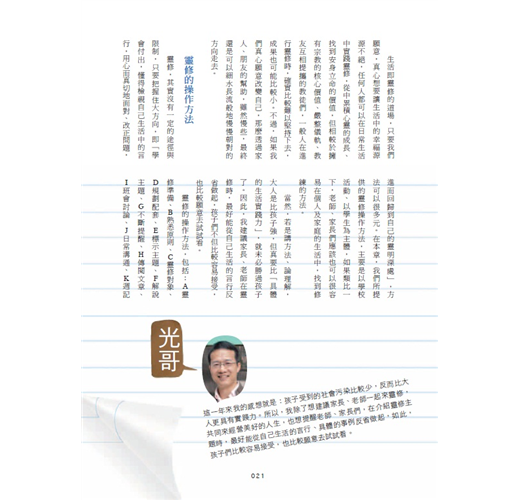 生活即靈修的道場，只要我們
願意，真心想要讓生活中的幸福源
源不絕，任何人都可以在日常生活
中實踐靈修，從中累積心靈的成長，
找到安身立命的價值。但相較於擁
有宗教的核心價值、嚴整儀軌、教
友互相提攜的教徒們，一般人在進
行靈修時，確實比較難以堅持下去，
成果也可能比較小。不過，如果我
們真心願意改變自己，那麼透過家
人、朋友的幫助，雖然慢些，最終
還是可以細水長流般地慢慢朝對的
方向走去。
靈修的操作方法
靈修，其實沒有一定的途徑與
限制，只要把握住大方向，即「學
會付出，懂得檢視自己生活中的言
行，用心面真切地面對、改正問題，
進而回歸到自己的靈明深處」，方
法可以很多元。在本章，我們所提
供的靈修操作方法，主要是以學校
活動、以學生為主體，如果類比一
下，老師、家長們應該也可以很容
易在個人及家庭的生活中，找到修
練的方法。
當然，若是講方法、論理解，
大人是比孩子強，但真要比「具體
的生活實踐力」，就未必勝過孩子
了。因此，我建議家長、老師在靈
修時，最好能從自己生活的言行反
省做起，孩子們不但比較容易接受，
也比較願意去試試看。
靈修的操作方法，包括：A靈
修準備、B熟悉原則、C靈修對象、
D規劃配套、E標示主題、F解說
主題、G不斷提醒、H傳閱文章、
I班會討論、J日常溝通、K週記
光哥
這一年來我的感想就是：孩子受到的社會污染比較少，反而比大
人更具有實踐力。所以，我除了想建議家長、老師一起來靈修，
共同來經營美好的人生，也想提醒老師、家長們，在介紹靈修主
題時，最好能從自己生活的言行、具體的事例反省做起，如此，
孩子們比較容易接受，也比較願意去試試看。
021